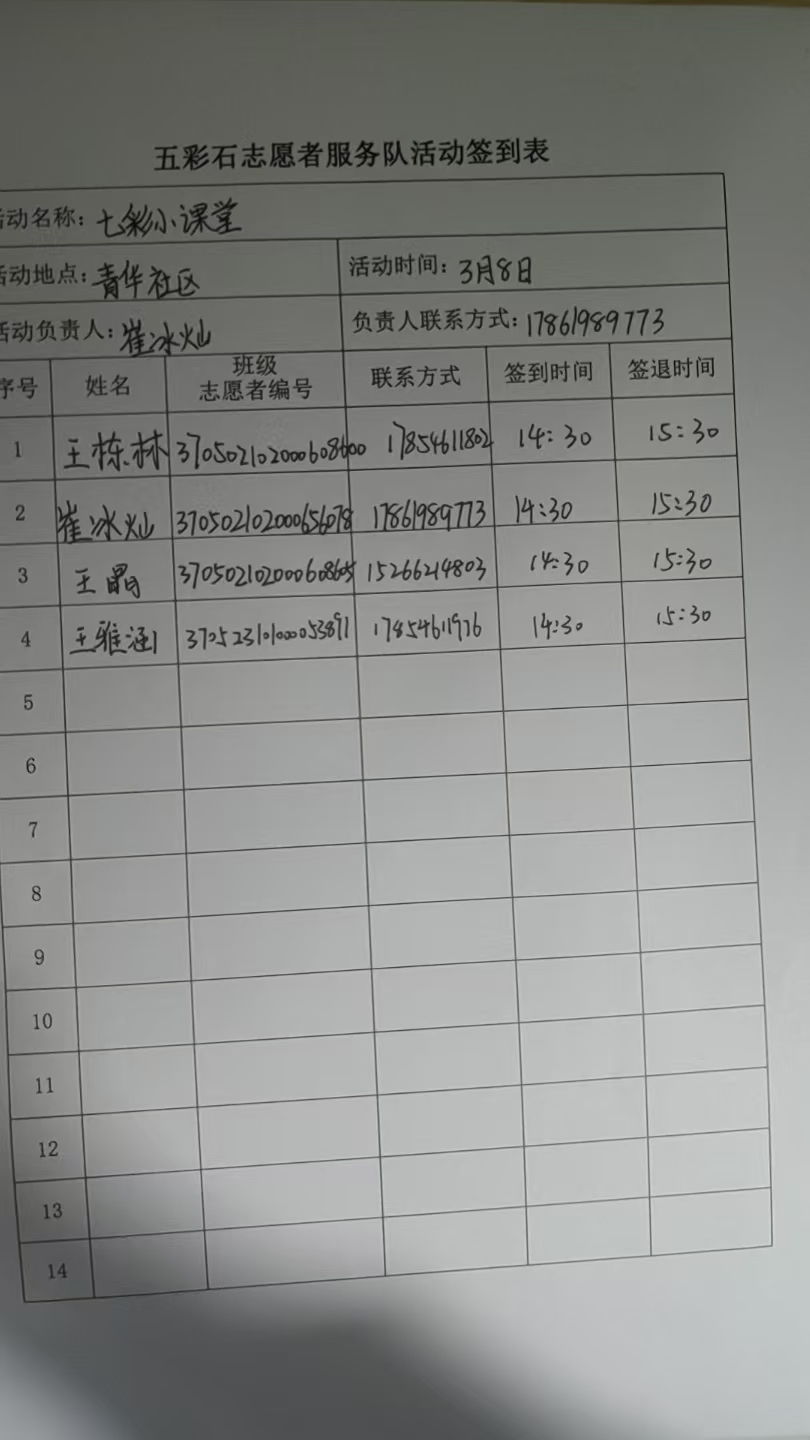 五彩石志愿者服务队活动签到表
活动名称：七彩小课堂
活动地点：青华社区 活动时间：3月8日
活动负责人：崔冰灿 负责人联系方式：17861989773
序号 姓名 班级 志愿者编号 联系方式 签到时间 签退时间
1 王栋林 370502102000608600 17854611802 14:30 15:30
2 崔冰灿 370502102000656078 17861989773 14:30 15:30
3 王晶 370502102000608605 15266214803 14:30 15:30
4 王雅涵 370523101000053891 17854611976 14:30 15:30
5
6
7
8
9
10
11
12
13
14